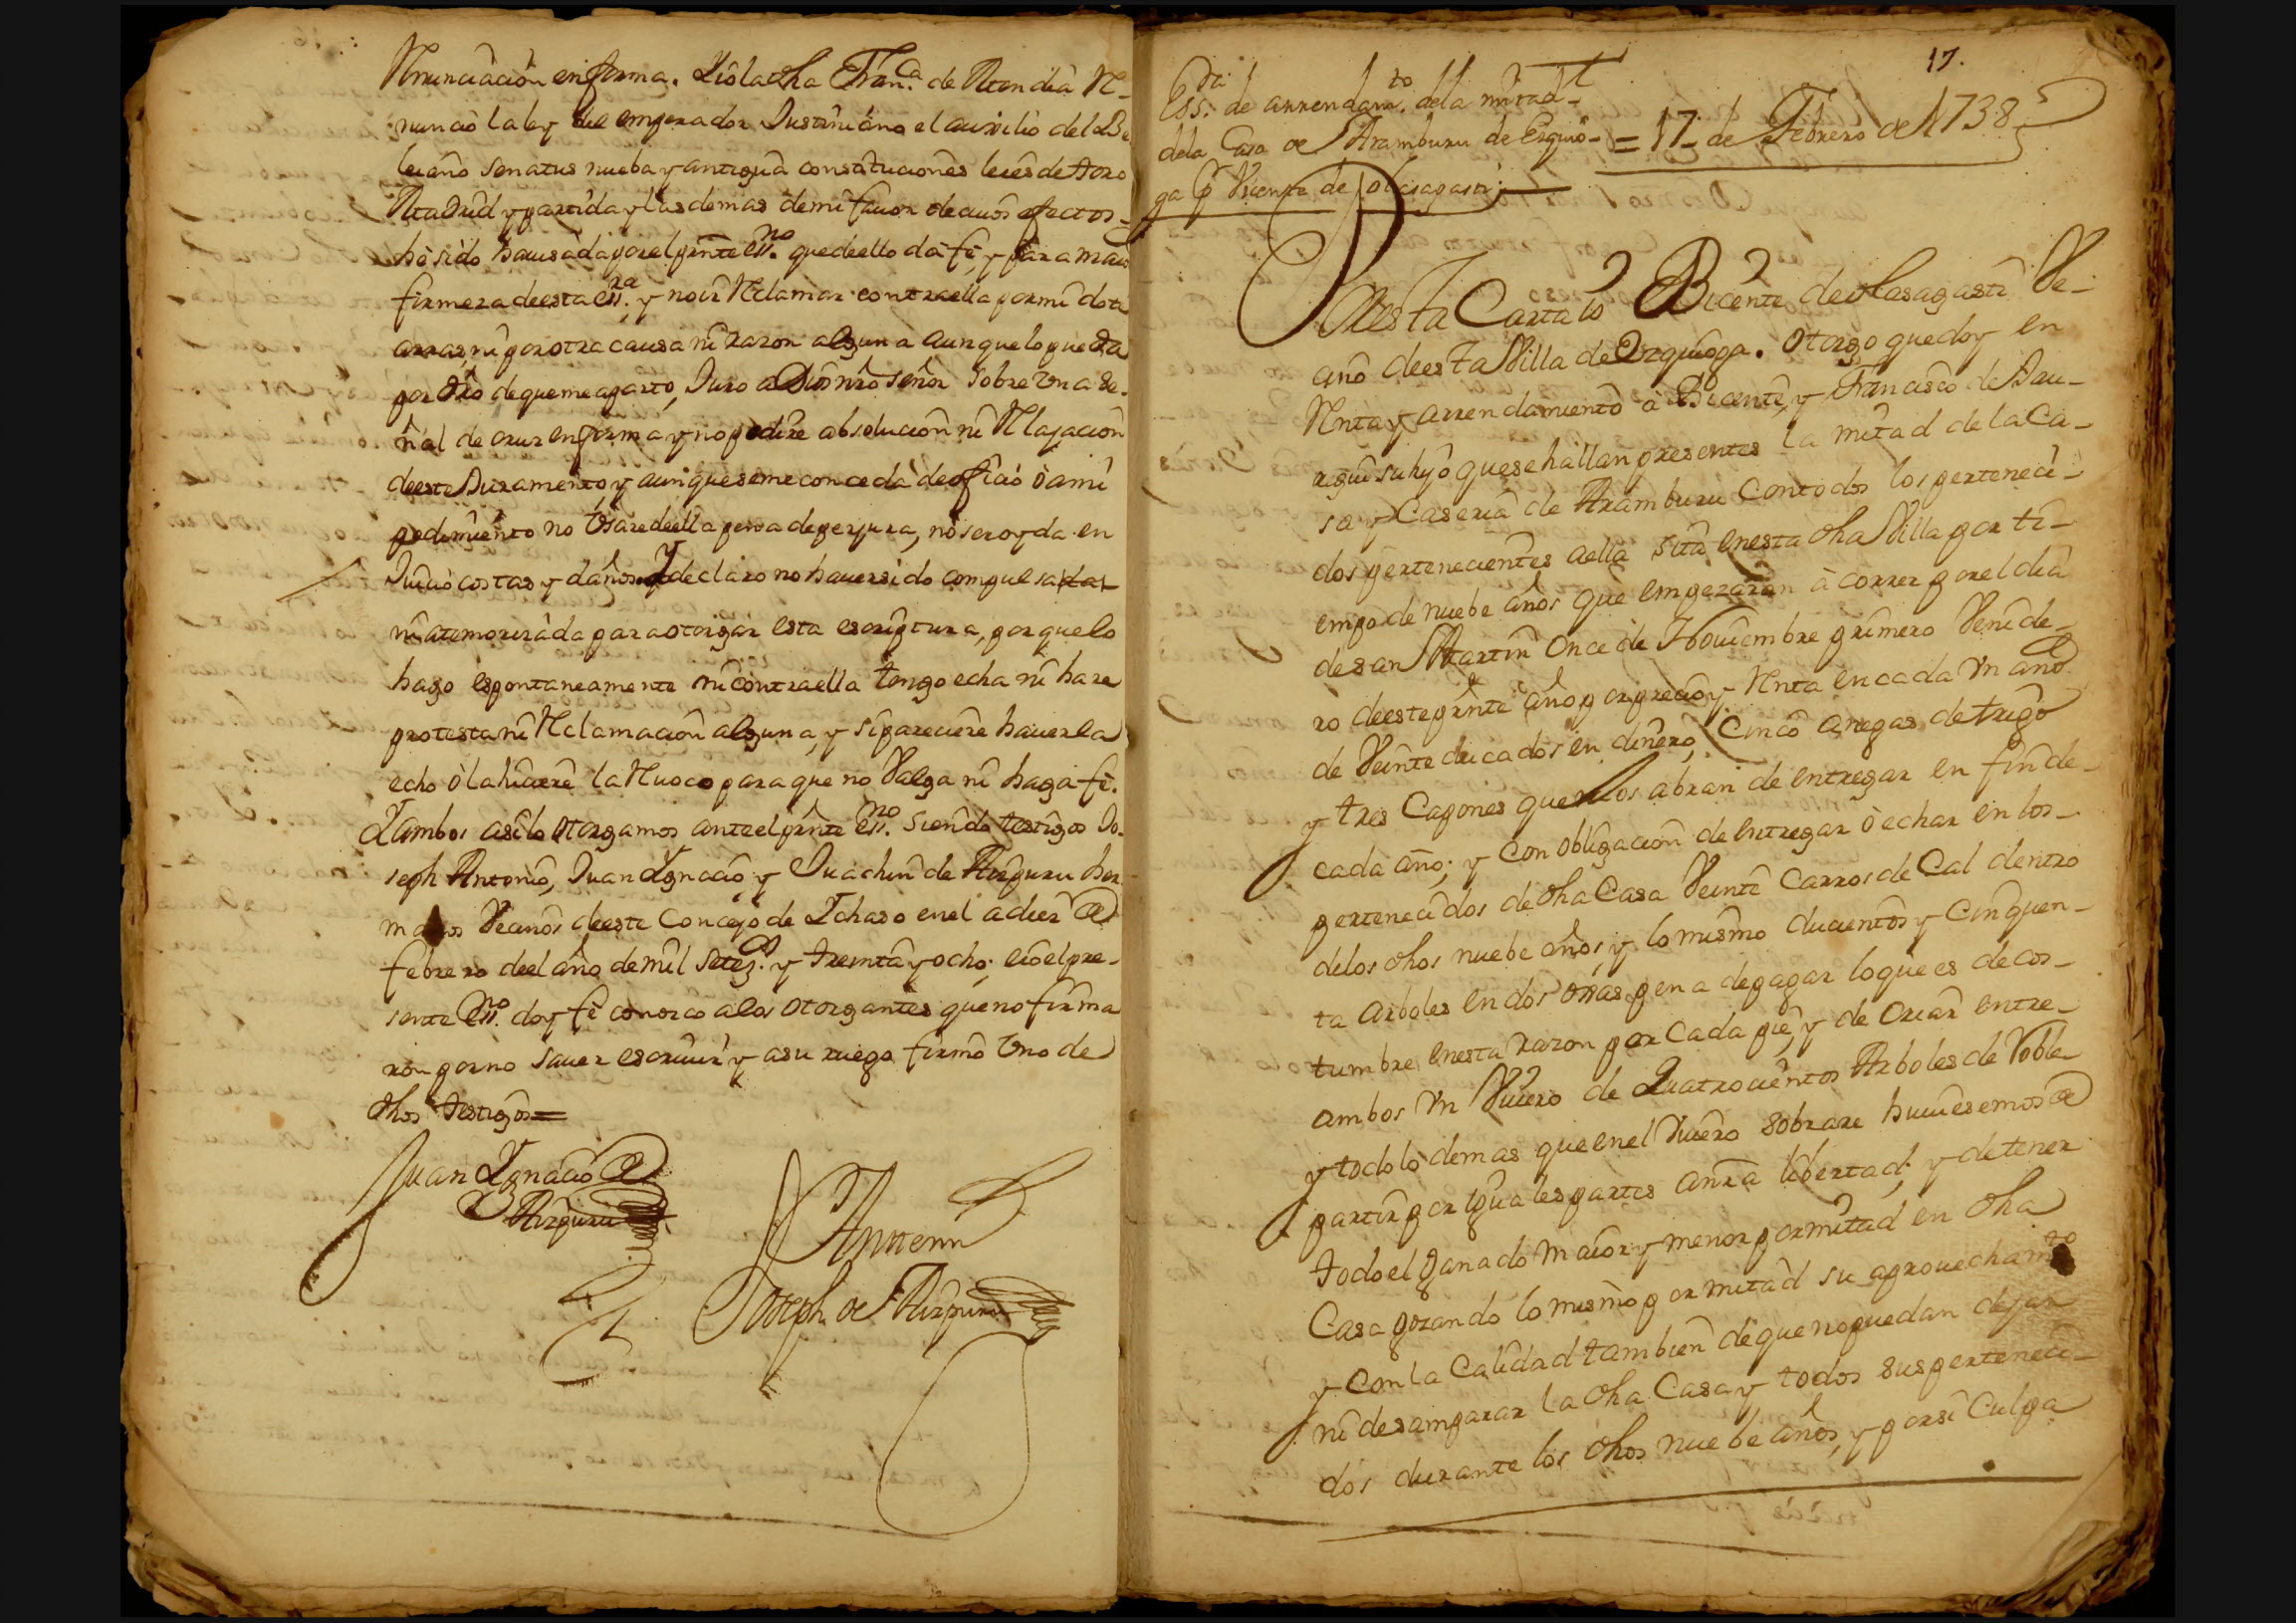 Renunciacion en forma. Y io la dha Fran.ca de Mendia Re-
nuncio la ley del emperador Justiniano el auxilio del Be
leiano senatus nueba y antigua constituciones leies de toro
Madrid y partida y las demas de mi fauor de cuios efectos-
he sido hauisada por el pnte ess.no que de ello da fe, y para maior
firmeza de esta ess.ra y no ir Reclamar contra ella por mi dote
arras, ni por otra causa ni razon alguna aunque lo pueda
por dro de que me aparto, Juro a Dios nro señor sobre vna se-
ñal de cruz en forma y no pedire absolucion ni Relajacion
de este Juramento, y aunque se me conceda de oficio ò a mi
pedimiento no vsare de ella pena de perjura, no ser oyda en
Juicio costas y daños. Y declaro no hauer sido compulsa
ni atemorizada para otorgar esta escriptura, porque lo
hago espontaneamente ni contra ella tengo echa ni hare
protesta ni Reclamacion alguna, y si pareciere hauerla
echo ò la hiciere la Reuoco para que no Valga ni haga fe.
Y ambos asi lo otorgamos ante el pnte ess.no siendo testigos Jo-
seph Antonio, Juan Ygnacio y Juachin de Aizpuru her
manos Vecinos de este Concejo de Ychaso en el a diez de
febrero de el año de mil setez.os y treinta y ocho; e io el pre-
sente ess.no doy fe conozco a los otorgantes que no firma
ron por no sauer escriuir y a su ruego firmo vno de
dhos testigos=
Juan Ygnacio de
Aizpuru
Ante mi
Joseph de Aizpuru
17.
Ess.ra de arrendam.to de la mitad-
de la Casa de Aramburu de Ezquio-
ga p.r Vicente de Olasagasti
= 17 de Febrero de 1738
Por esta Carta io Bicente de Olasagasti Ve-
cino de esta Villa de Ezquioga. Otorgo que doy en
Renta y arrendamiento à Bicente, y Francisco de Bau-
su hijo que se hallan presentes la mitad de la Ca-
sa y Caseria de Aramburu con todos los perteneci-
dos pertenecientes a ella sita en esta dha Villa por ti-
empo de nuebe años que empezaran à correr por el dia
de san Martin Once de Nouiembre primero Venide-
ro de este pnte año por precio y Renta en cada vn año
de Veinte ducados en dinero, Cinco anegas de trigo
y tres Capones que me los abran de entregar en fin de-
cada año; y con obligacion de entregar ò echar en los-
pertenecidos de dha Casa Veinte Carros de Cal dentro
de los dhos nuebe años, y lo mismo ducientos y Cinquen-
ta arboles en dos pena de pagar lo que es de cos-
tumbre en esta razon por Cada pie, y de Criar entre-
ambos vn Viuero de Quatrocientos Arboles de Roble
y todo lo demas que en el Viuero sobrare huuiesemos de
partir por iguales partes a nra libertad; y de tener
todo el ganado maior y menor por mitad en dha
Casa gozando lo mismo por mitad su aprouecham.to
y con la Calidad tambien de que no puedan dejar
ni desamparar la dha Casa y todos sus perteneci-
dos durante los dhos nuebe años, y por si Culpa